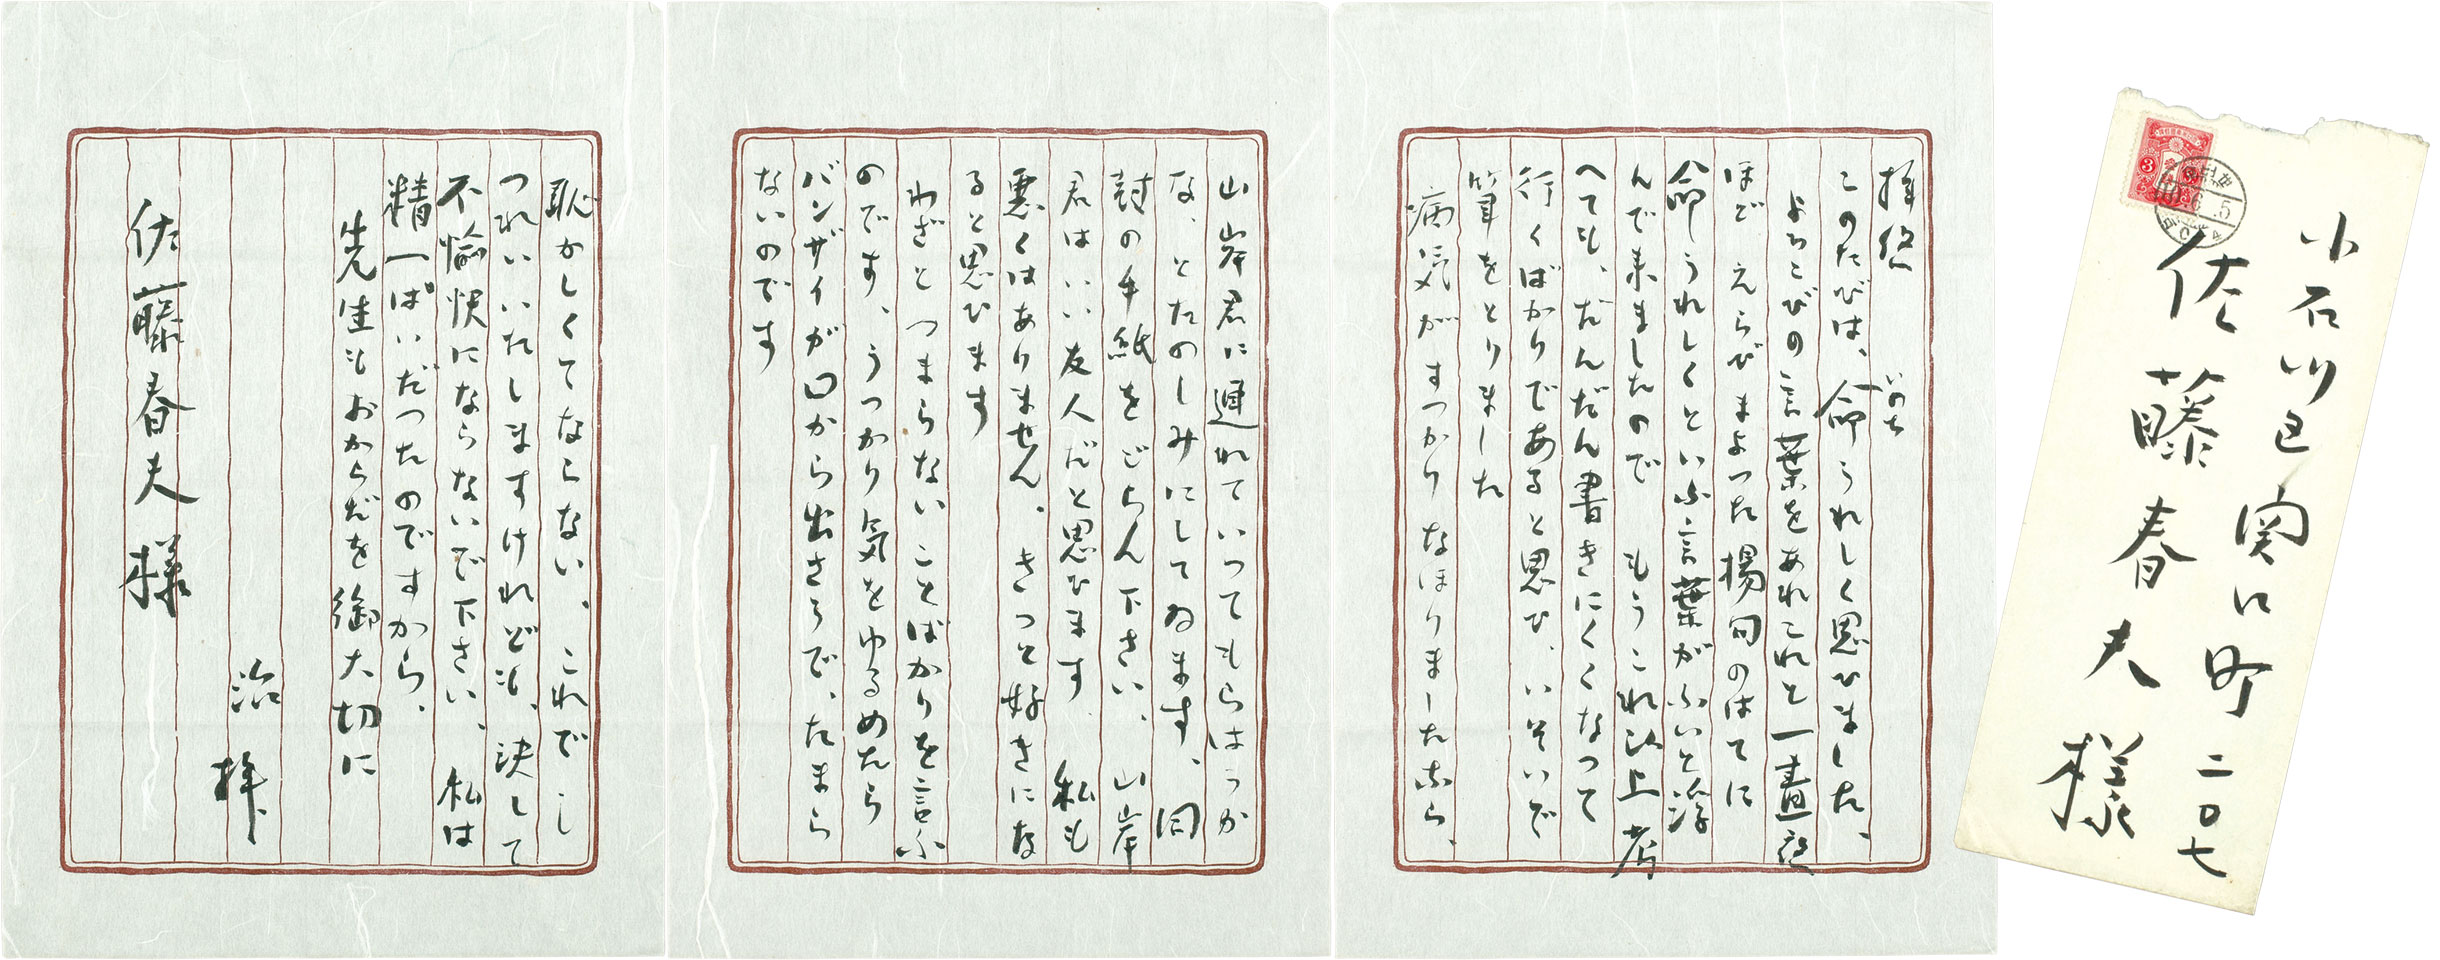 小石川区関口町二〇七
佐藤春夫様
拝啓
このたびは、命うれしく思ひました、
いのち
よろこびの言葉をあれこれと一晝夜
ほど えらびまよつた揚句のはてに
命うれしくといふ言葉がふいと浮
んで来ましたので もうこれ以上考
へても、だんだん書きにくくなつて
行くばかりであると思ひ、いそいで
筆をとりました
病気が すつかり なほりましたら、
山岸君に連れていつてもらはうか
な、とたのしみにしてゐます、同
封の手紙をごらん下さい、山岸
君はいい友人だと思ひます、私も
悪くはありません、きつと好きにな
ると思ひます
わざとつまらないことばかりを言ふ
のです、うつかり気をゆるめたら
バンザイが口から出さうで、たまら
ないのです
恥かしくてならない、これでし
つれいいたしますけれども、決して
不愉快にならないで下さい、私は
精一ぱいだつたのですから、
先生もおからだを御大切に
治 拝
佐藤春夫様